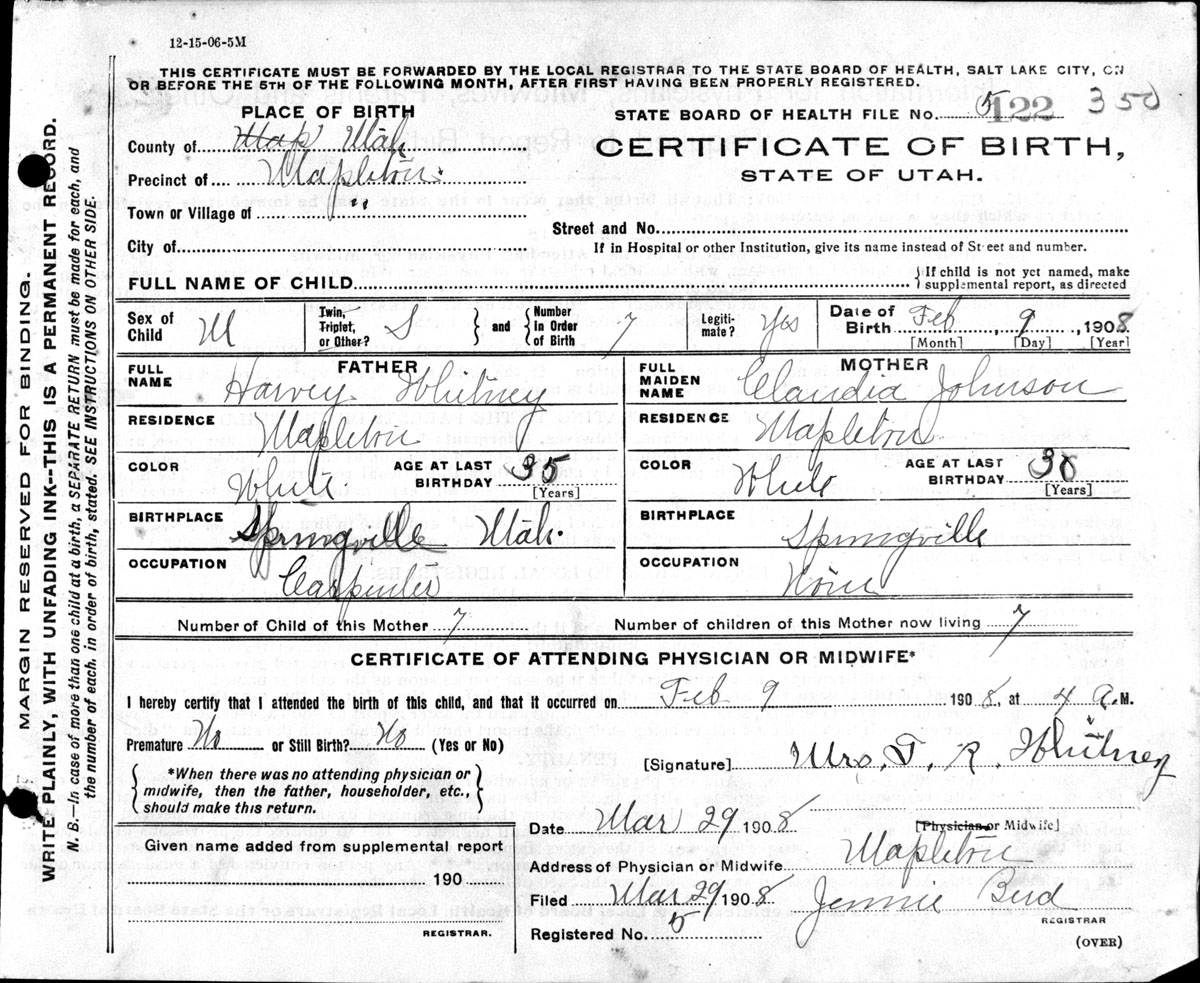 12-15-06-5M
THIS CERTIFICATE MUST BE FORWARDED BY THE LOCAL REGISTRAR TO THE STATE BOARD OF HEALTH, SALT LAKE CITY, ON
OR BEFORE THE 5TH OF THE FOLLOWING MONTH, AFTER FIRST HAVING BEEN PROPERLY REGISTERED.
PLACE OF BIRTH
County of Map Utah
Precinct of Mapleton
Town or Village of "
City of
STATE BOARD OF HEALTH FILE NO. 5 122 350
CERTIFICATE OF BIRTH,
STATE OF UTAH.
Street and No.
If in Hospital or other Institution, give its name instead of Street and number.
FULL NAME OF CHILD
{If child is not yet named, make
supplemental report, as directed
Sex of Child M
Twin, Triplet, or Other? S
and
Number in Order of Birth 7
Legitimate? Yes
Date of Birth Feb, 9, 1908
[Month] [Day] [Year]
FATHER
FULL NAME Harvey Whitney
RESIDENCE Mapleton
COLOR White
AGE AT LAST BIRTHDAY 35
[Years]
BIRTHPLACE Springville Utah.
OCCUPATION Carpenter
MOTHER
FULL MAIDEN NAME Claudia Johnson
RESIDENCE Mapleton
COLOR White
AGE AT LAST BIRTHDAY 30
[Years]
BIRTHPLACE Springville
OCCUPATION None
Number of Child of this Mother 7
Number of children of this Mother now living 7
CERTIFICATE OF ATTENDING PHYSICIAN OR MIDWIFE*
I hereby certify that I attended the birth of this child, and that it occurred on Feb 9 1908, at 4 A.M.
Premature No or Still Birth? No (Yes or No)
*When there was no attending physician or
midwife, then the father, householder, etc.,
should make this return.
[Signature] Mrs. F. R. Whitney
[Physician or Midwife]
Given name added from supplemental report
190
REGISTRAR.
Date Mar 29 1908
Address of Physician or Midwife Mapleton
Filed Mar 29 1908 Jennie Bird
REGISTRAR
Registered No. 5
(OVER)
MARGIN RESERVED FOR BINDING.
WRITE PLAINLY, WITH UNFADING INK--THIS IS A PERMANENT RECORD.
N. B.—In case of more than one child at a birth, a SEPARATE RETURN must be made for each, and
the number of each, in order of birth, stated. SEE INSTRUCTIONS ON OTHER SIDE.